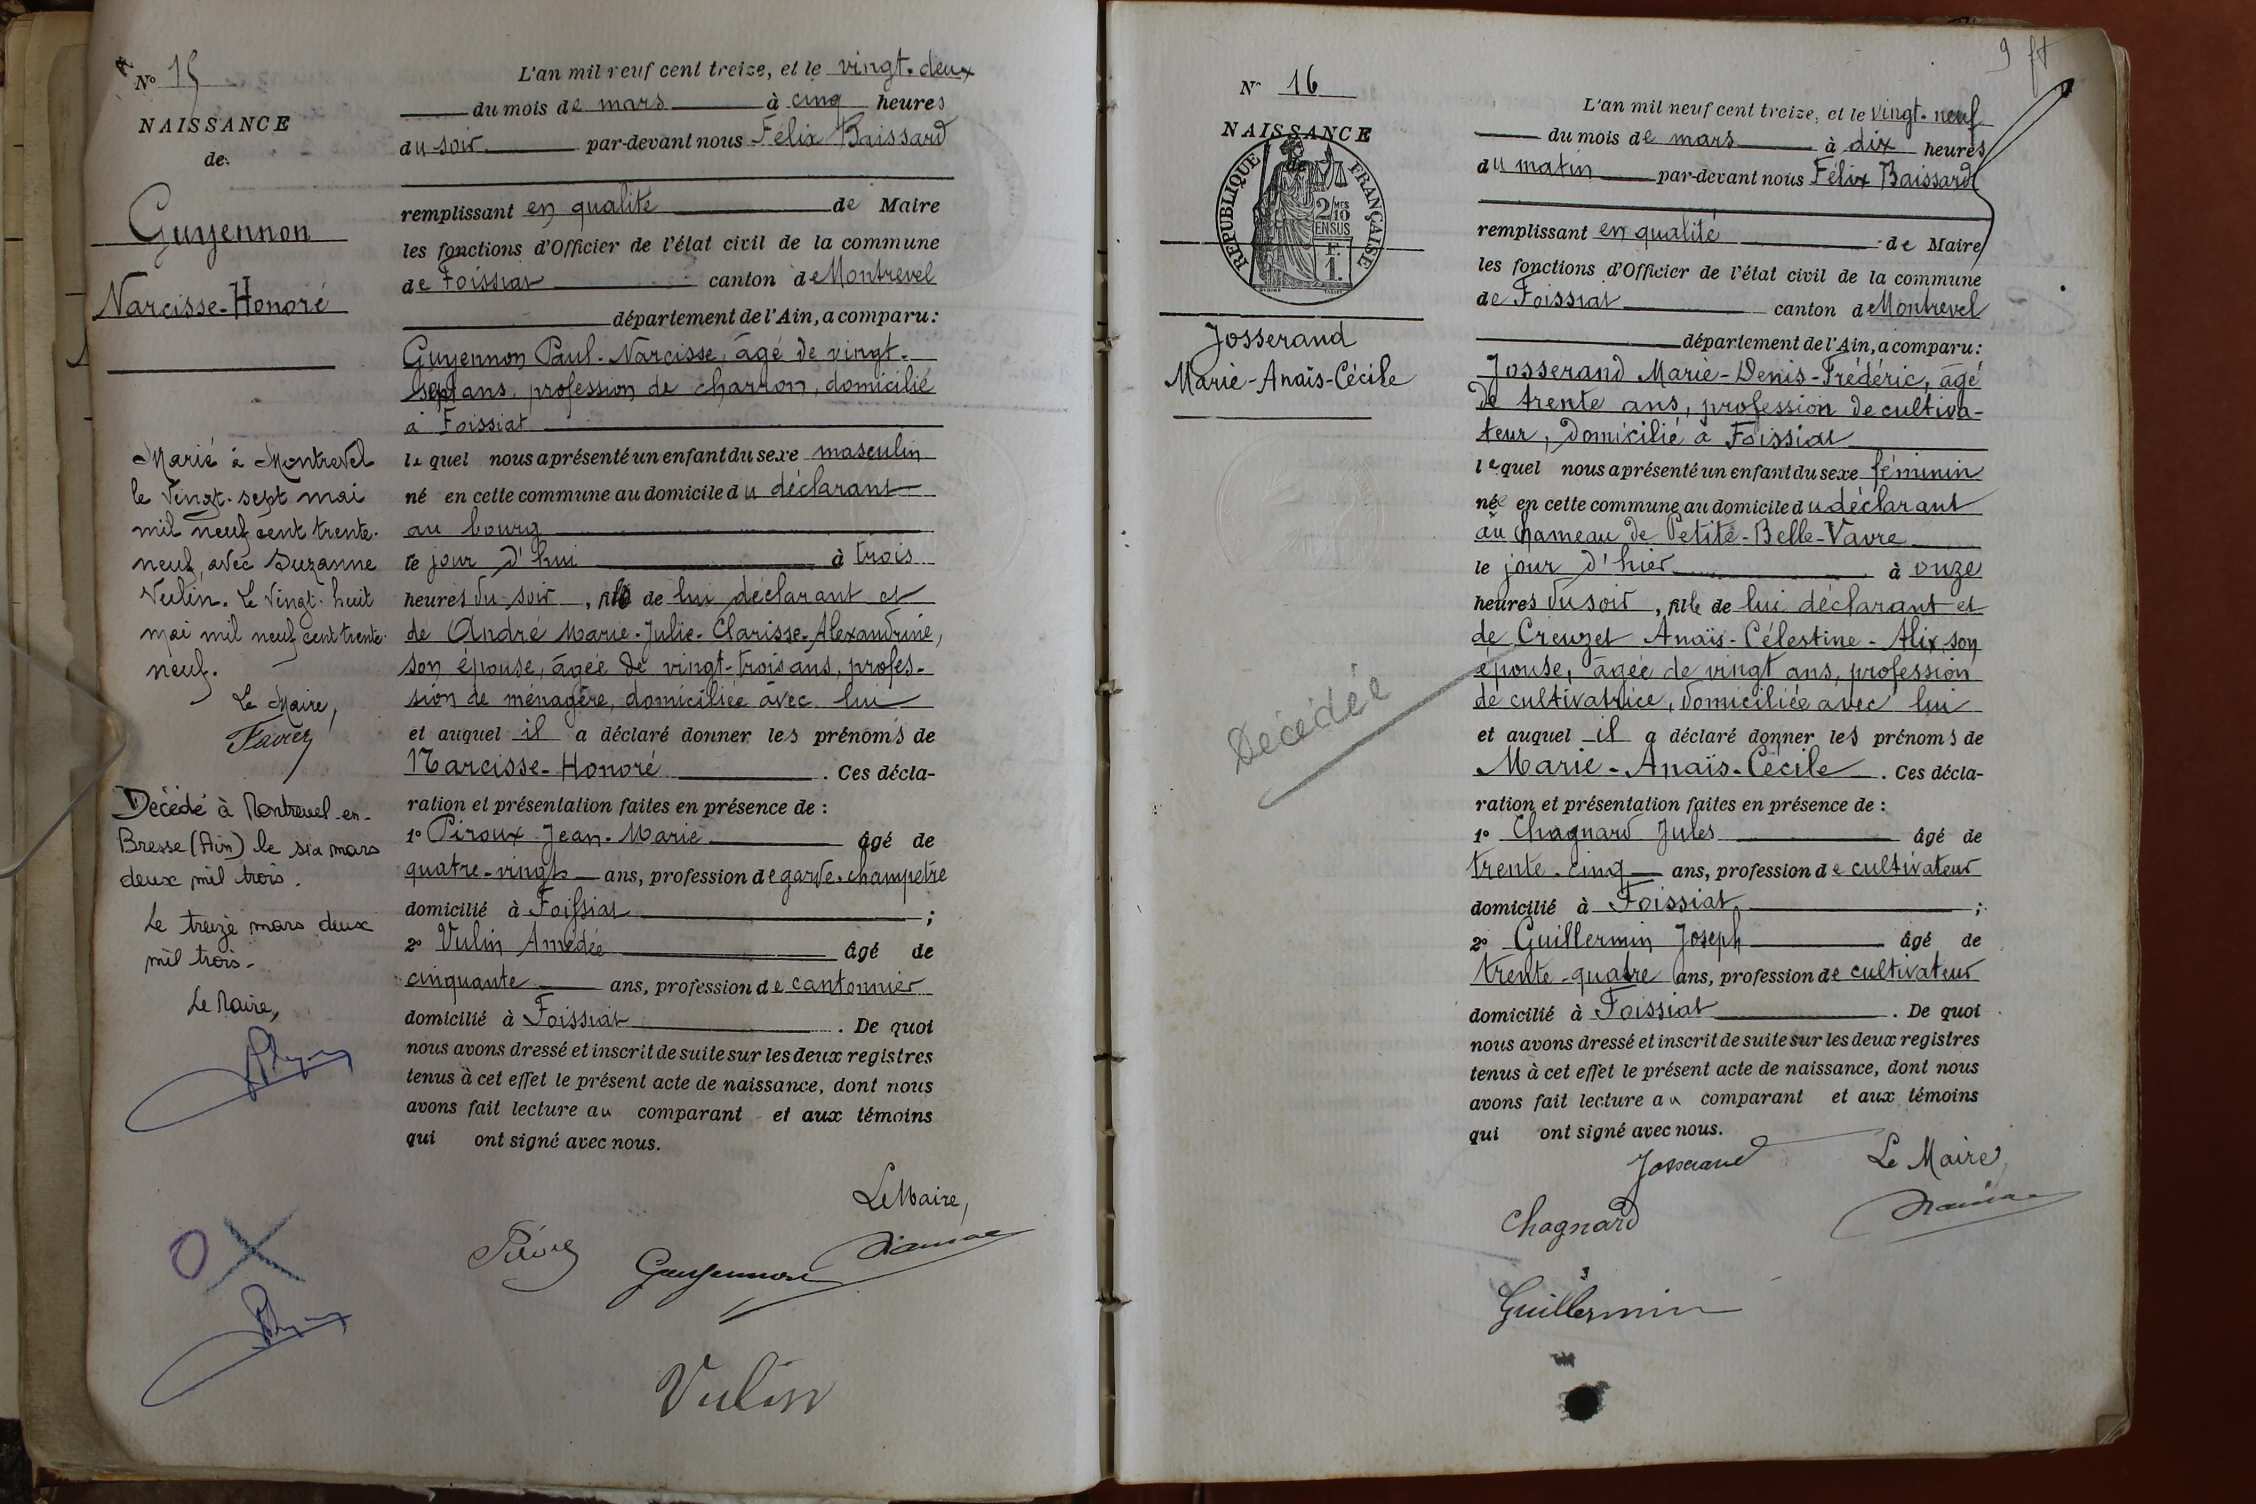 Nº 15
NAISSANCE
de
Guyennon
Narcisse-Honoré
Marié à Montrevel
le vingt-sept mai
mil neuf cent trente-
neuf, avec Suzanne
Vulin. Le vingt-huit
mai mil neuf cent trente-
neuf.
Le Maire,
Favier
Décédé à Montrevel-en-
Bresse (Ain) le six mars
deux mil trois.
Le treize mars deux
mil trois.
Le Maire,
L'an mil neuf cent treize, et le vingt-deux
du mois de mars à cinq heures
du soir par-devant nous Félix Baissard
remplissant en qualité de Maire
les fonctions d'Officier de l'état civil de la commune
de Foissiat canton de Montrevel
département de l'Ain, a comparu :
Guyennon Paul-Narcisse, âgé de vingt-
sept ans, profession de charron, domicilié
à Foissiat
lequel nous a présenté un enfant du sexe masculin
né en cette commune au domicile du déclarant
au bourg
le jour d'hui à trois
heures du soir, fils de lui déclarant et
de André Marie-Julie-Clarisse-Alexandrine,
son épouse, âgée de vingt-trois ans, profes-
sion de ménagère, domiciliée avec lui
et auquel il a déclaré donner les prénoms de
Narcisse-Honoré. Ces décla-
ration et présentation faites en présence de :
1º Piroux Jean-Marie âgé de
quatre-vingts ans, profession de garde-champêtre
domicilié à Foissiat ;
2º Vulin Amédée âgé de
cinquante ans, profession de cantonnier
domicilié à Foissiat. De quoi
nous avons dressé et inscrit de suite sur les deux registres
tenus à cet effet le présent acte de naissance, dont nous
avons fait lecture au comparant et aux témoins
qui ont signé avec nous.
Le Maire,
Guyennon
Vulin
9 ft
Nº 16
NAISSANCE
de
REPUBLIQUE FRANÇAISE
2/10MES
EN SUS
F.
1.
Josserand
Marie-Anaïs-Cécile
Décédée
L'an mil neuf cent treize, et le vingt-neuf
du mois de mars à dix heures
du matin par-devant nous Félix Baissard
remplissant en qualité de Maire
les fonctions d'Officier de l'état civil de la commune
de Foissiat canton de Montrevel
département de l'Ain, a comparu :
Josserand Marie-Denis-Frédéric, âgé
de trente ans, profession de cultiva-
teur, domicilié à Foissiat
lequel nous a présenté un enfant du sexe féminin
née en cette commune au domicile du déclarant
au hameau de Petite-Belle-Vavre
le jour d'hier à onze
heures du soir, fille de lui déclarant et
de Creuzet Anaïs-Célestine-Alix, son
épouse, âgée de vingt ans, profession
de cultivatrice, domiciliée avec lui
et auquel il a déclaré donner les prénoms de
Marie-Anaïs-Cécile. Ces décla-
ration et présentation faites en présence de :
1º Chagnard Jules âgé de
trente-cinq ans, profession de cultivateur
domicilié à Foissiat ;
2º Guillermin Joseph âgé de
trente-quatre ans, profession de cultivateur
domicilié à Foissiat. De quoi
nous avons dressé et inscrit de suite sur les deux registres
tenus à cet effet le présent acte de naissance, dont nous
avons fait lecture au comparant et aux témoins
qui ont signé avec nous.
Josserand Le Maire,
Chagnard
Guillermin